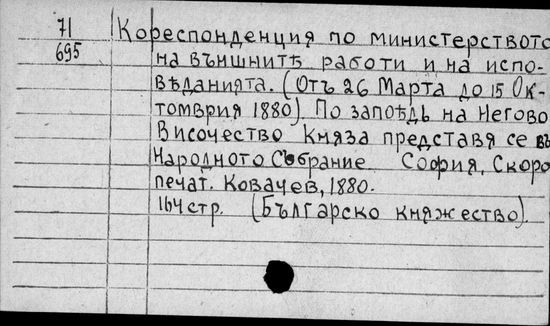 71
695
Кореспонденция по министерството
на външнитѣ работи и на испо-
вѣданията. (Отъ 26 Марта до 15 Ок-
томврия 1880). По заповѣдь на Негово
Височество Княза представя се въ
Народното Събрание София, Скоро
печат. Ковачев, 1880.
164 стр. (Българско княжество).